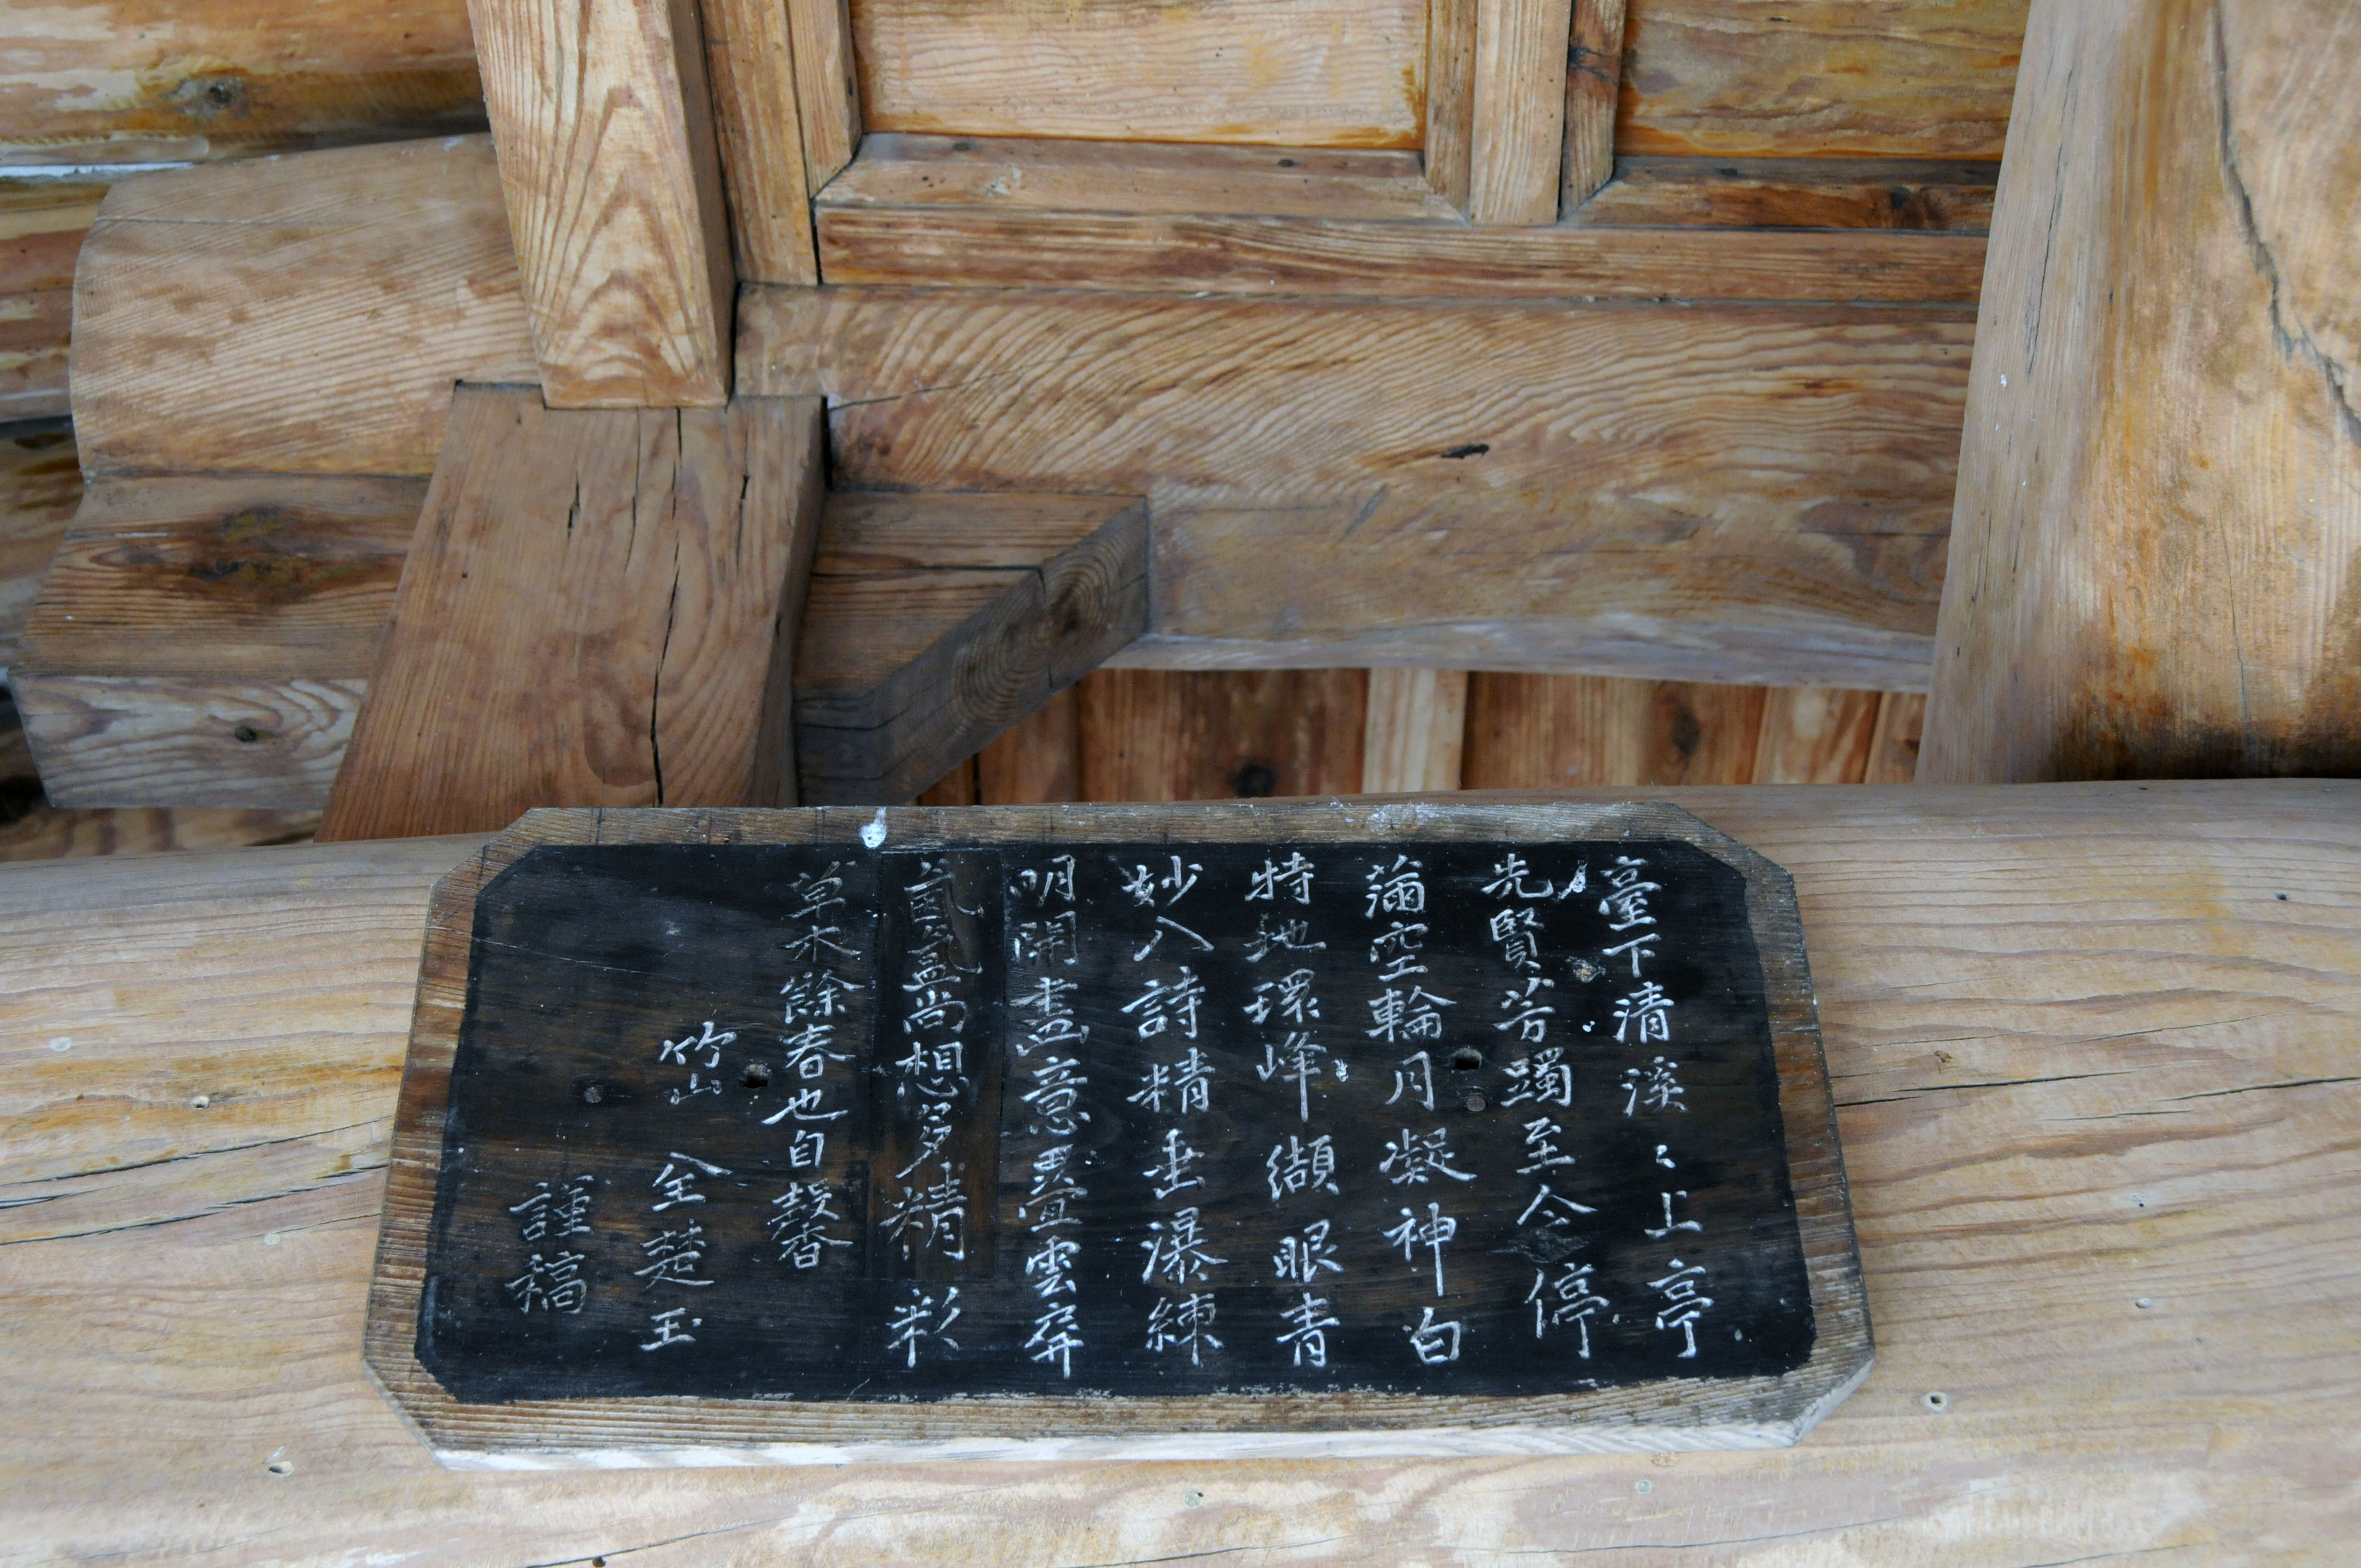 臺下清溪〻上亭
先賢芳躅至今停
滿空輪月凝神白
特地環峰纈眼青
妙入詩精垂瀑練
明開畵意疊雲屏
氤氳尚想多精彩
草木餘春也自馨
竹山 全楚玉
謹稿